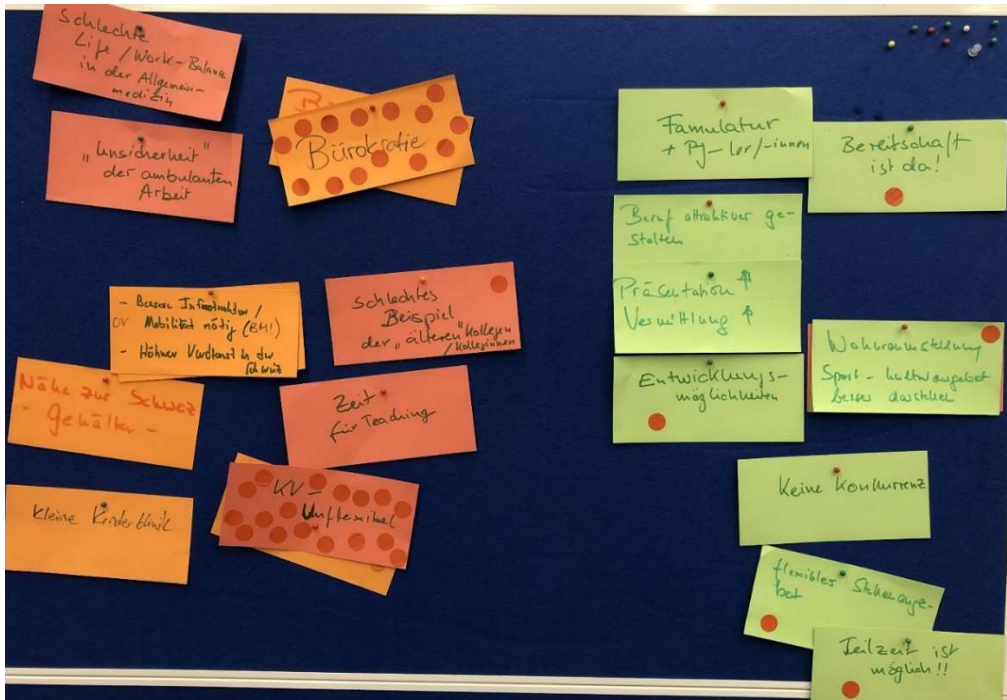 Schlechte
Life / Work-Balance
in der Allgemein-
medizin
"Unsicherheit"
der ambulanten
Arbeit
B
Bürokratie
- Bessere Infrastruktur /
ÖV Mobilität nötig (BM!)
- Höherer Verdienst in der
Schweiz
Schlechtes
Beispiel
der "älteren" Kollegen
/Kolleginnen
Nähe zur Schweiz
- Gehälter -
Zeit
für Teaching
KV-
Unflexibel
Kleine Kinderklinik
Famulatur
+ PJ-ler/-innen
Bereitschaft
ist da!
Beruf attraktiver ge-
stalten
Präsentation
Vermittlung
Entwicklungs-
möglichkeiten
Sport-
besser darstellen
Keine Konkurrenz
flexibles Stellenange-
bot
Teilzeit ist
möglich!!